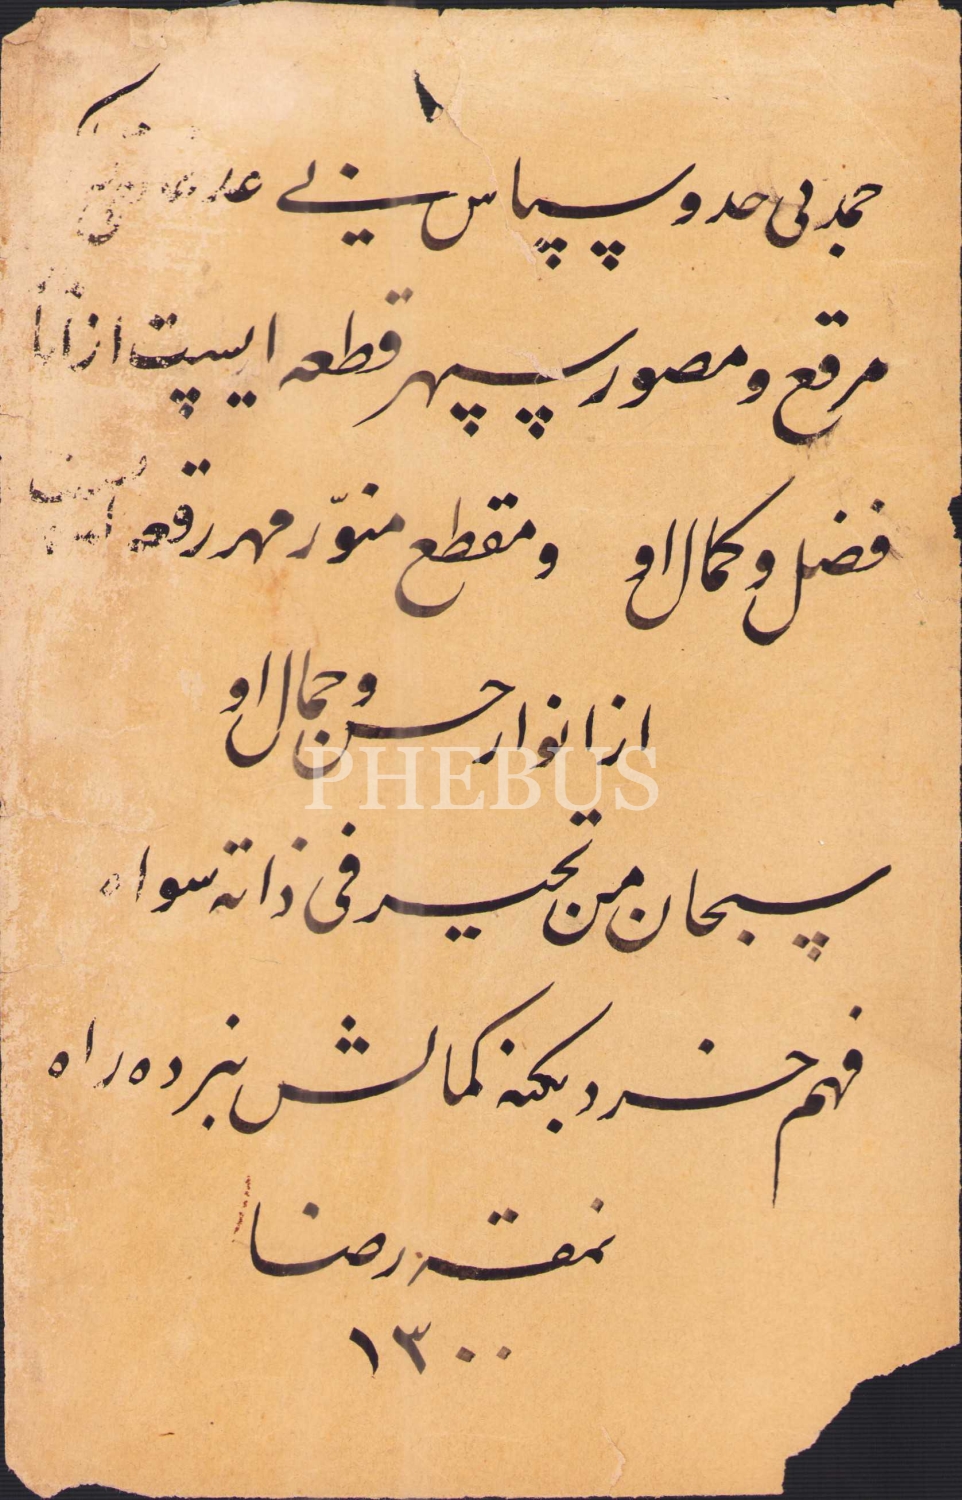 حمد بی حد و سپاس بی عد
مرقع و مصور سپهر قطعه ایست از
فضل و کمال او و مقطع منوّر مهر رقعه
از انوار حسن و جمال او
PHEBUS
سبحان من تحیر فی ذاته سواه
فهم خرد بکنه کمالش نبرده راه
نمقه رضا
۱۳۰۰